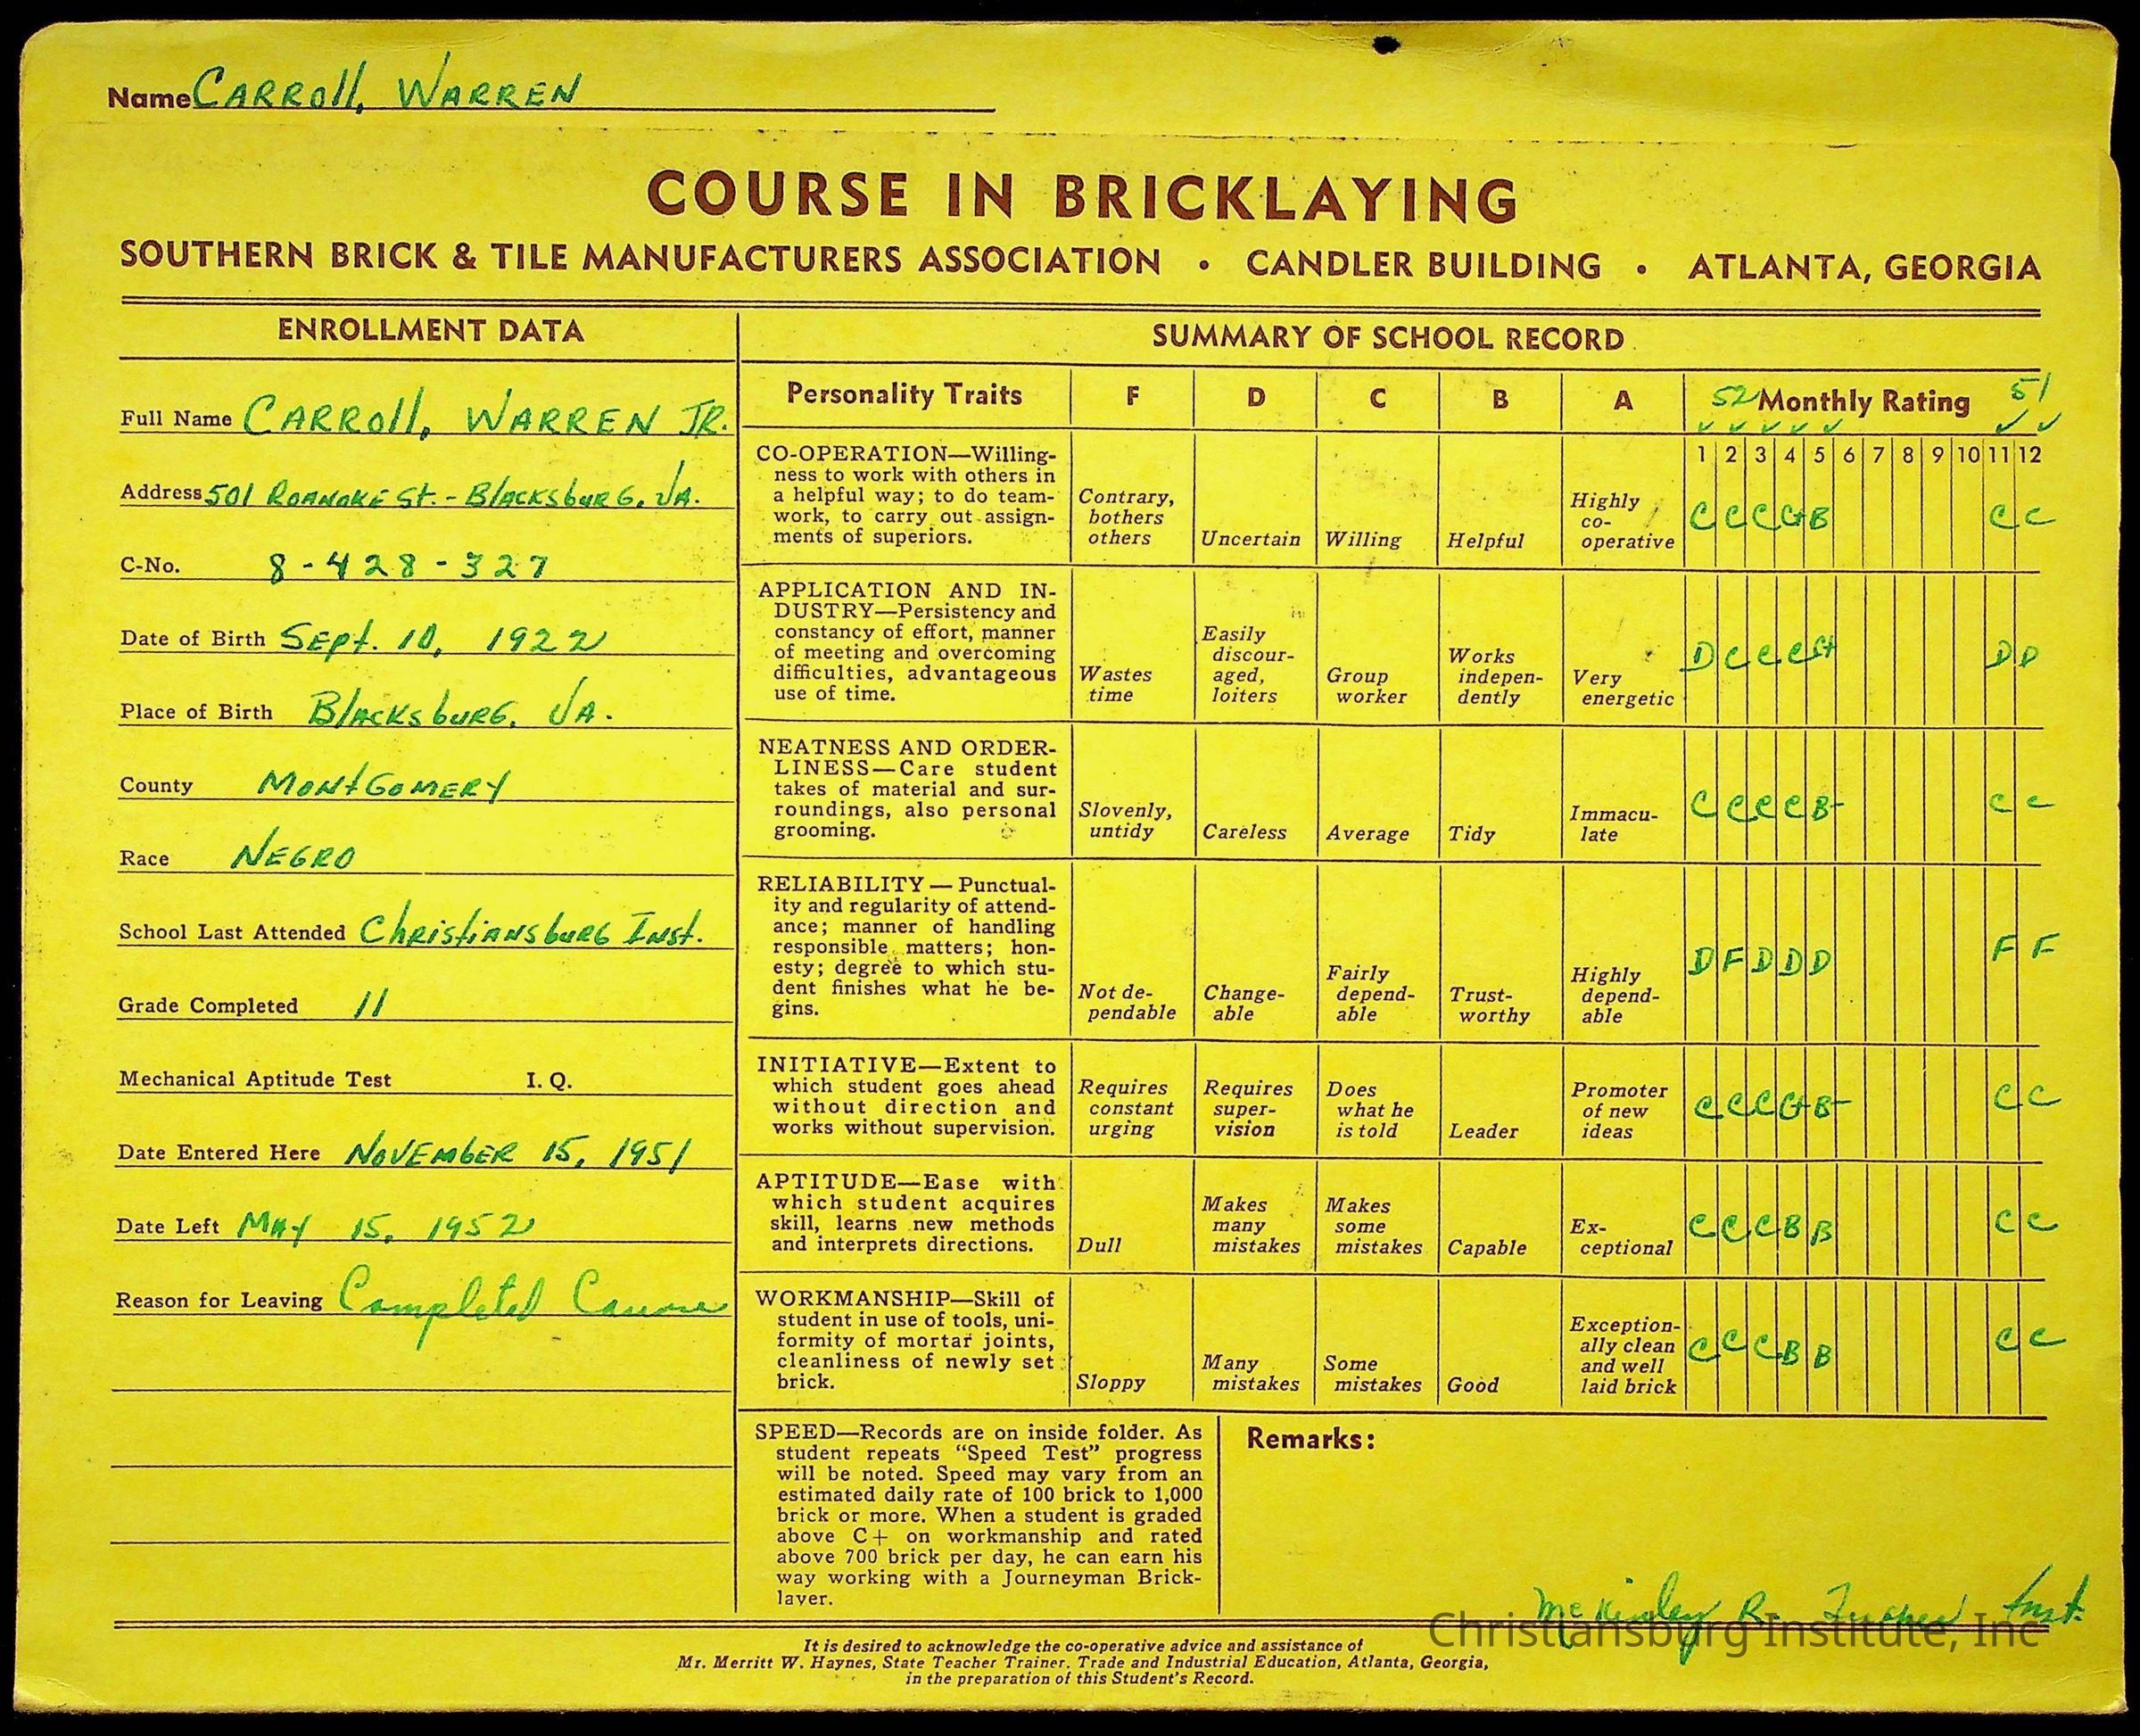 Name CARROll, WARREN
COURSE IN BRICKLAYING
SOUTHERN BRICK & TILE MANUFACTURERS ASSOCIATION • CANDLER BUILDING • ATLANTA, GEORGIA
ENROLLMENT DATA
Full Name CARROll, WARREN JR.
Address 501 ROANOKE St. - BlACKSbURG, VA.
C-No. 8-428-327
Date of Birth SEpt. 10, 1922
Place of Birth BlACKSbURG, VA.
County MONtGOMERY
Race NEGRO
School Last Attended ChRiStiANSbURG INSt.
Grade Completed 11
Mechanical Aptitude Test I. Q.
Date Entered Here NOVEMBER 15, 1951
Date Left MAY 15, 1952
Reason for Leaving Completed Course
SUMMARY OF SCHOOL RECORD
Personality Traits F D C B A 52 Monthly Rating 51
1 2 3 4 5 6 7 8 9 10 11 12
CO-OPERATION—Willing-
ness to work with others in
a helpful way; to do team-
work, to carry out assign-
ments of superiors.
Contrary,
bothers
others
Uncertain
Willing
Helpful
Highly
co-
operative
C C C C+ B C C
APPLICATION AND IN-
DUSTRY—Persistency and
constancy of effort, manner
of meeting and overcoming
difficulties, advantageous
use of time.
Wastes
time
Easily
discour-
aged,
loiters
Group
worker
Works
indepen-
dently
Very
energetic
D C C C C+ D D
NEATNESS AND ORDER-
LINESS—Care student
takes of material and sur-
roundings, also personal
grooming.
Slovenly,
untidy
Careless
Average
Tidy
Immacu-
late
C C C C B- C C
RELIABILITY — Punctual-
ity and regularity of attend-
ance; manner of handling
responsible matters; hon-
esty; degree to which stu-
dent finishes what he be-
gins.
Not de-
pendable
Change-
able
Fairly
depend-
able
Trust-
worthy
Highly
depend-
able
D F D D D F F
INITIATIVE—Extent to
which student goes ahead
without direction and
works without supervision.
Requires
constant
urging
Requires
super-
vision
Does
what he
is told
Leader
Promoter
of new
ideas
C C C C+ B- C C
APTITUDE—Ease with
which student acquires
skill, learns new methods
and interprets directions.
Dull
Makes
many
mistakes
Makes
some
mistakes
Capable
Ex-
ceptional
C C C B B C C
WORKMANSHIP—Skill of
student in use of tools, uni-
formity of mortar joints,
cleanliness of newly set
brick.
Sloppy
Many
mistakes
Some
mistakes
Good
Exception-
ally clean
and well
laid brick
C C C B B C C
SPEED—Records are on inside folder. As
student repeats “Speed Test” progress
will be noted. Speed may vary from an
estimated daily rate of 100 brick to 1,000
brick or more. When a student is graded
above C+ on workmanship and rated
above 700 brick per day, he can earn his
way working with a Journeyman Brick-
layer.
Remarks:
McKinley R. Inst.
Christiansburg Institute, Inc
It is desired to acknowledge the co-operative advice and assistance of
Mr. Merritt W. Haynes, State Teacher Trainer, Trade and Industrial Education, Atlanta, Georgia,
in the preparation of this Student's Record.